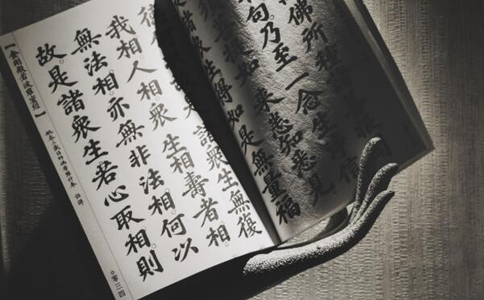 佛所種
句。乃至一念生
如來悉知悉見
得如是無量福
德
諸眾生無復
我相人相眾生相壽者相。
無法相亦無非法相。何以
故。是諸眾生若心取相。則
【金剛般若波羅蜜經】
〇三四